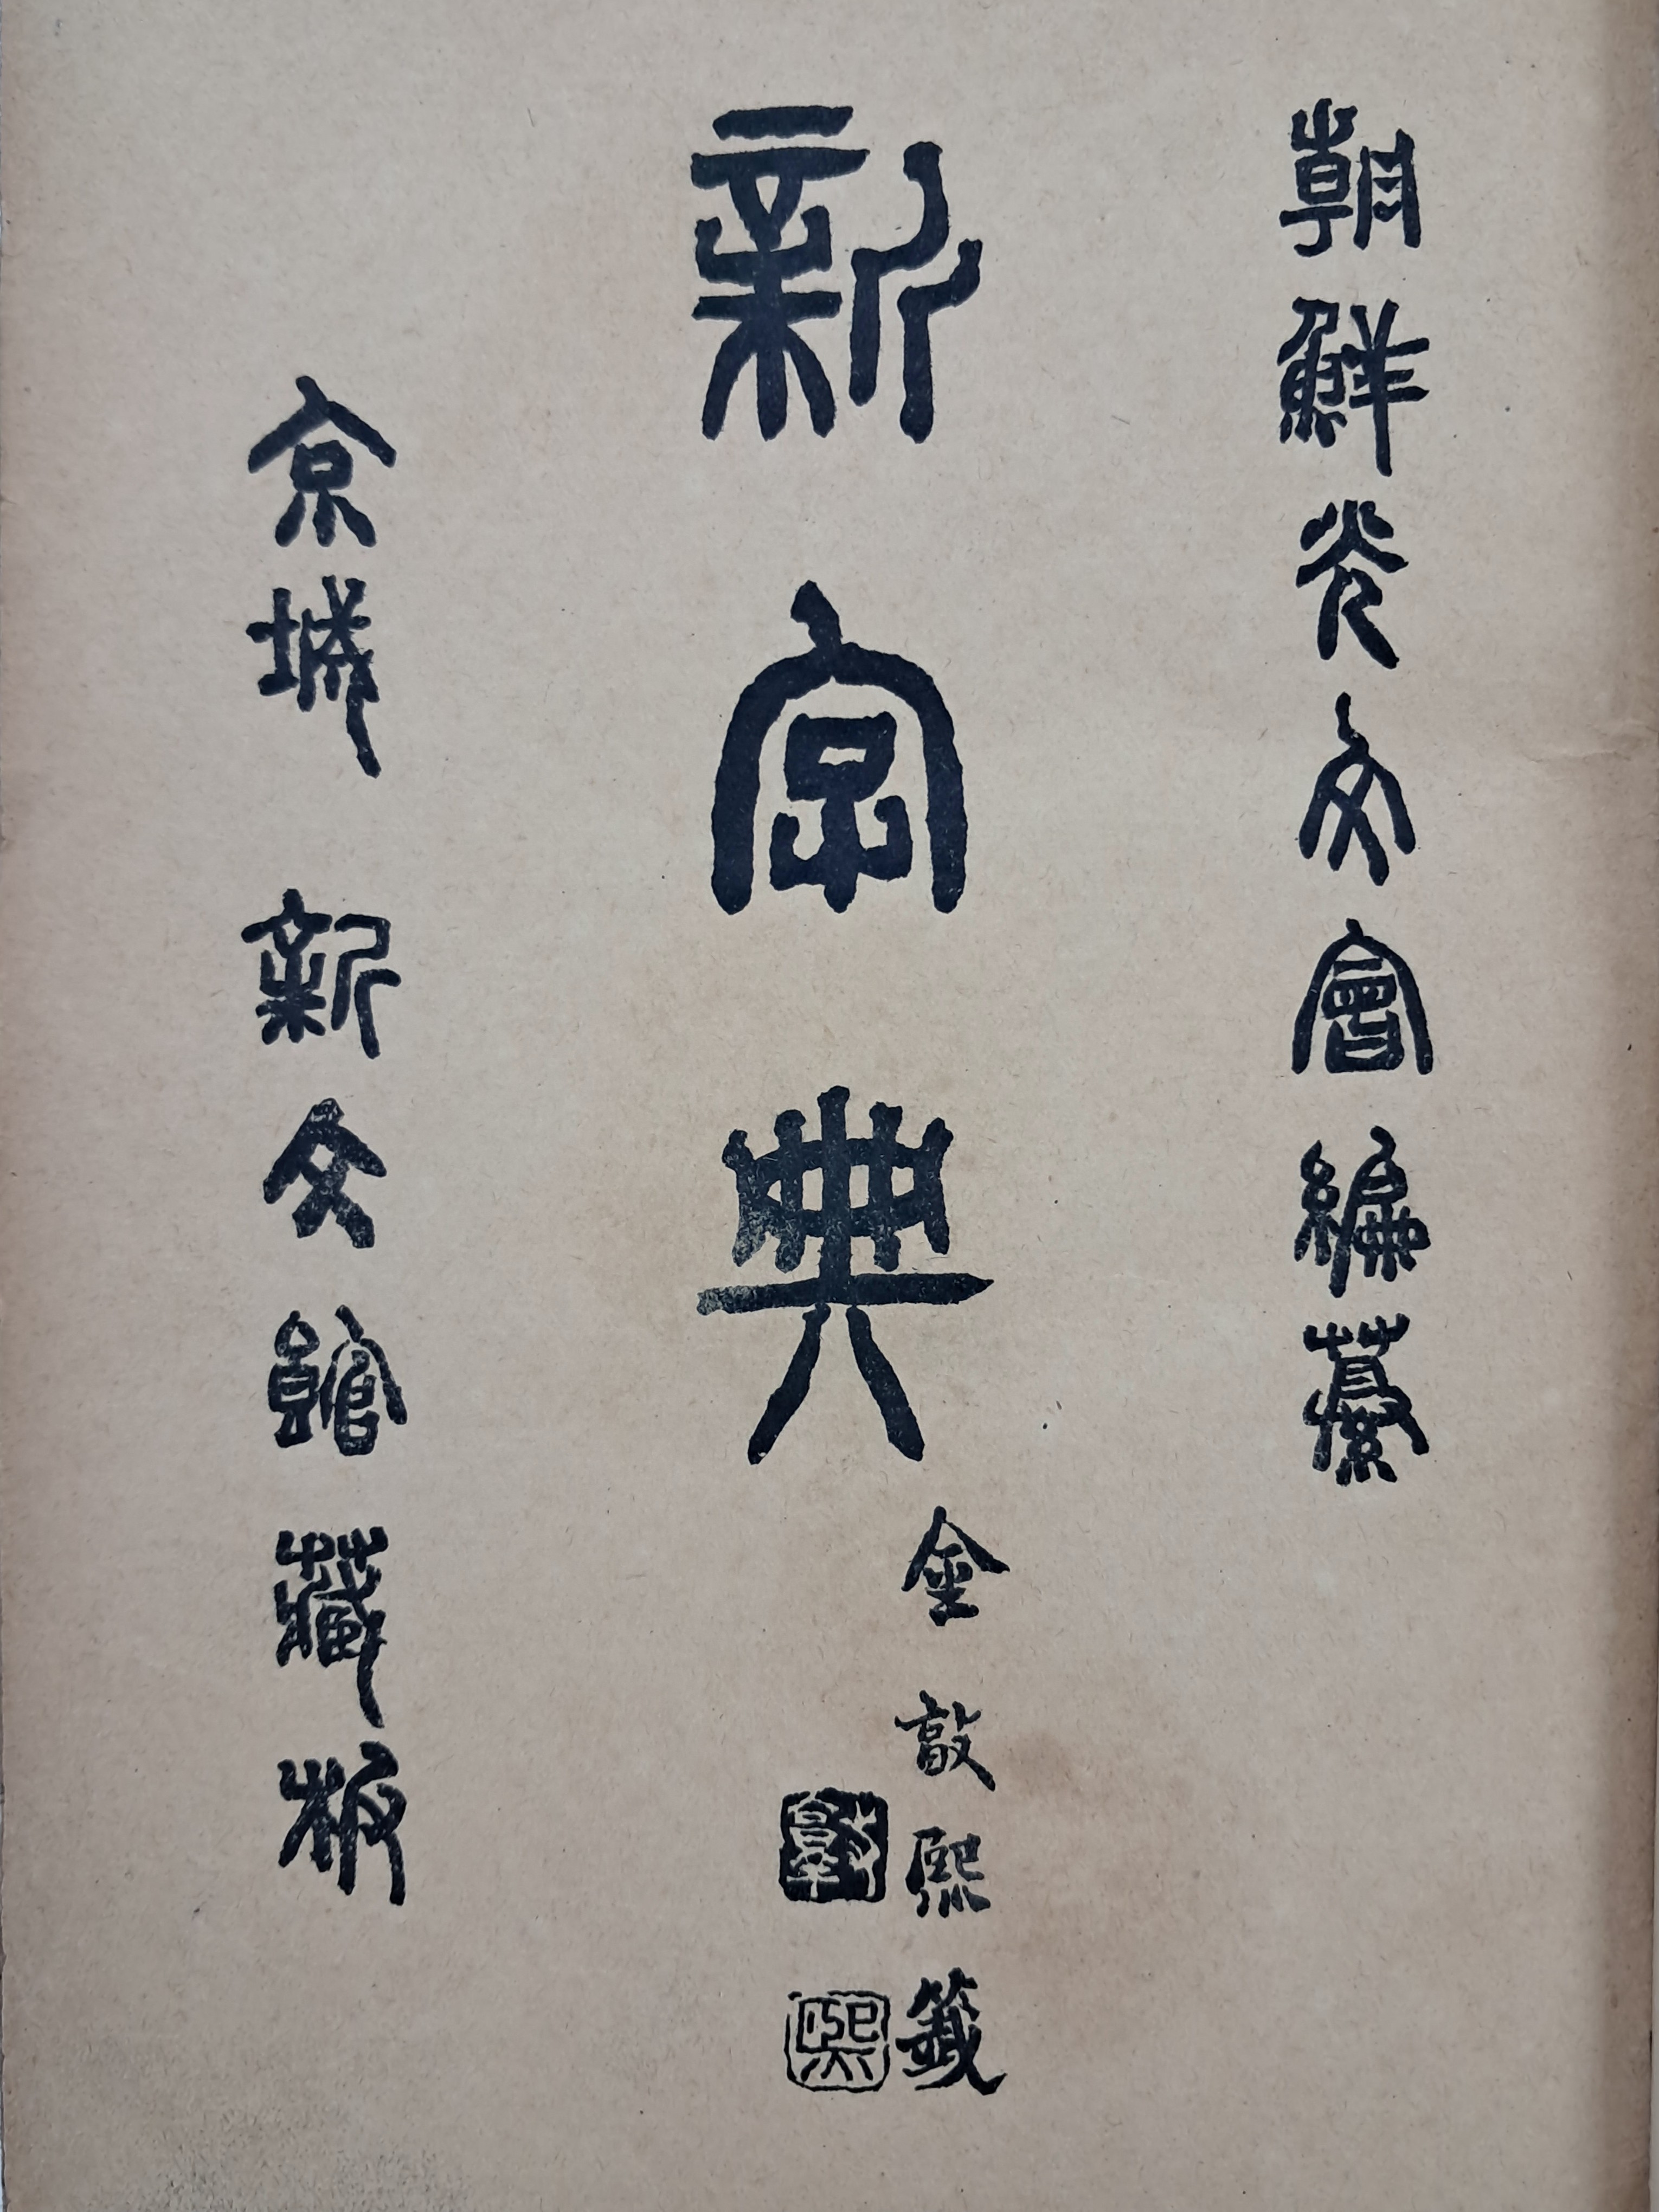 朝鮮光文會編纂
新字典
金敦熙籤
敦
熙
京城 新文館藏板